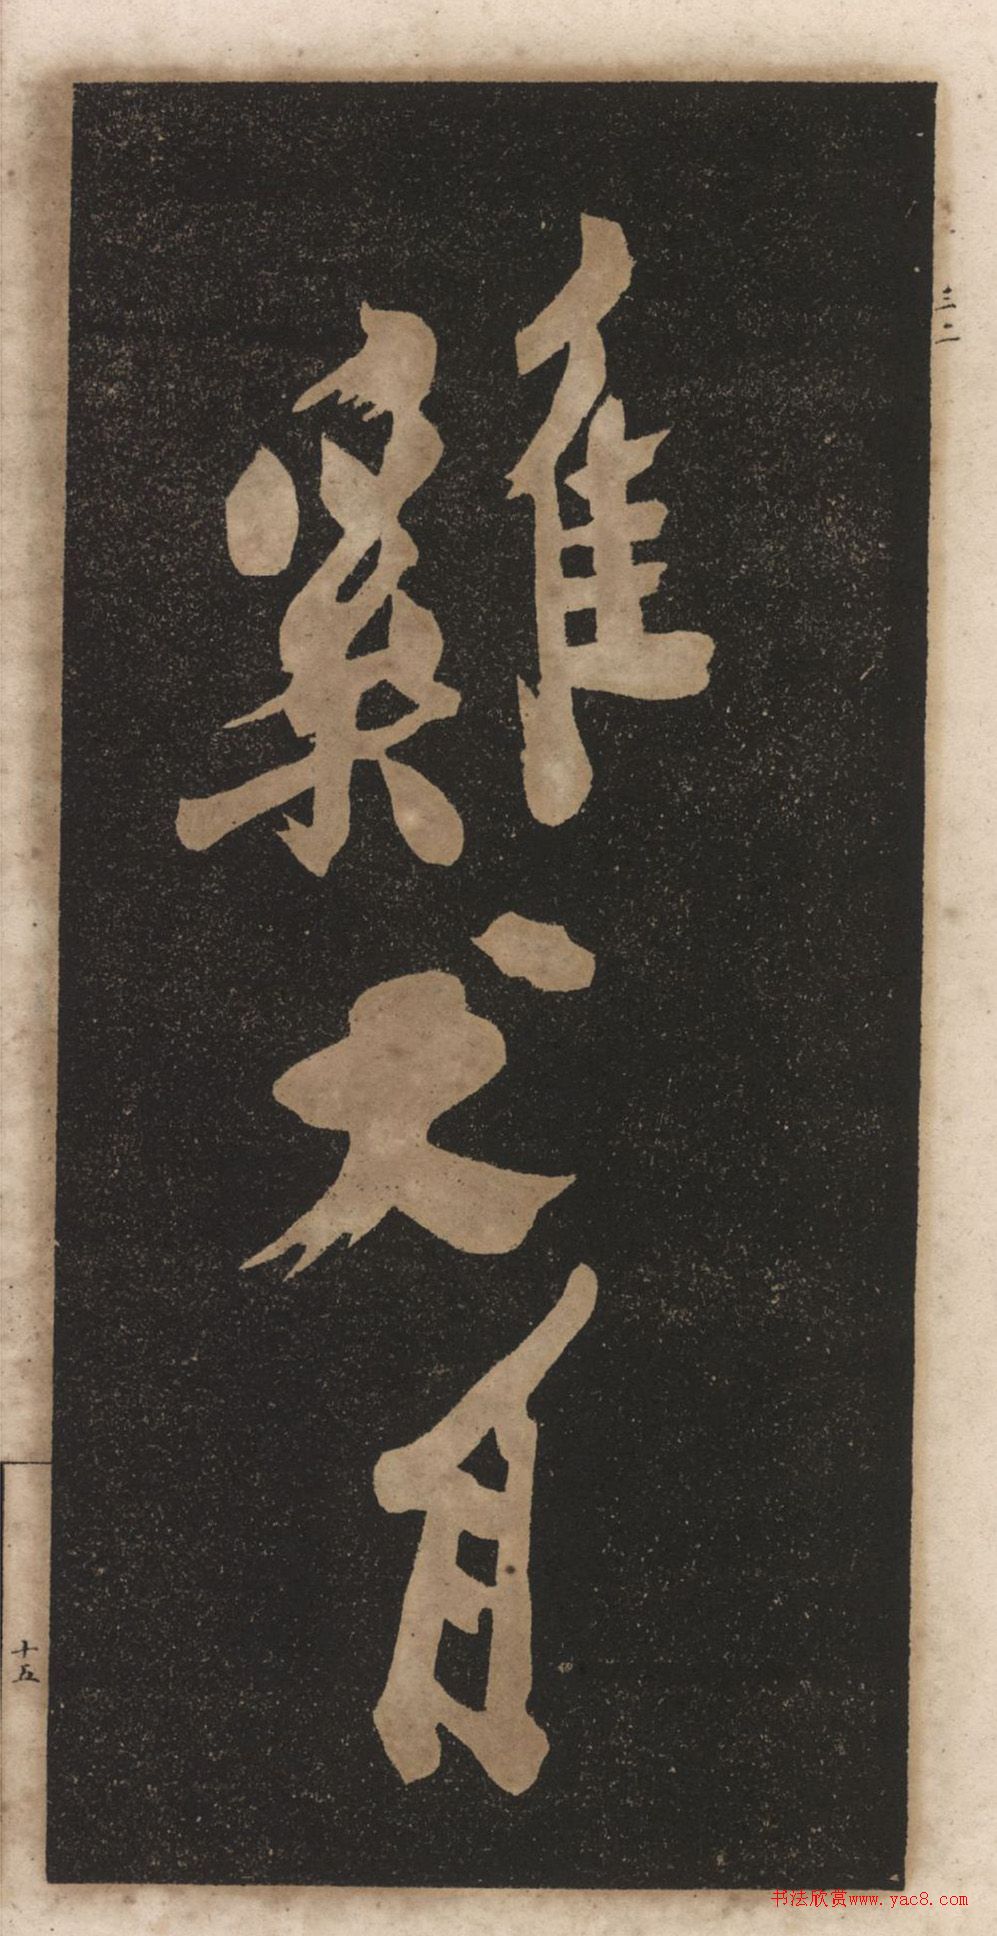 雞犬自
三二
十五
书法欣赏www.yac8.com